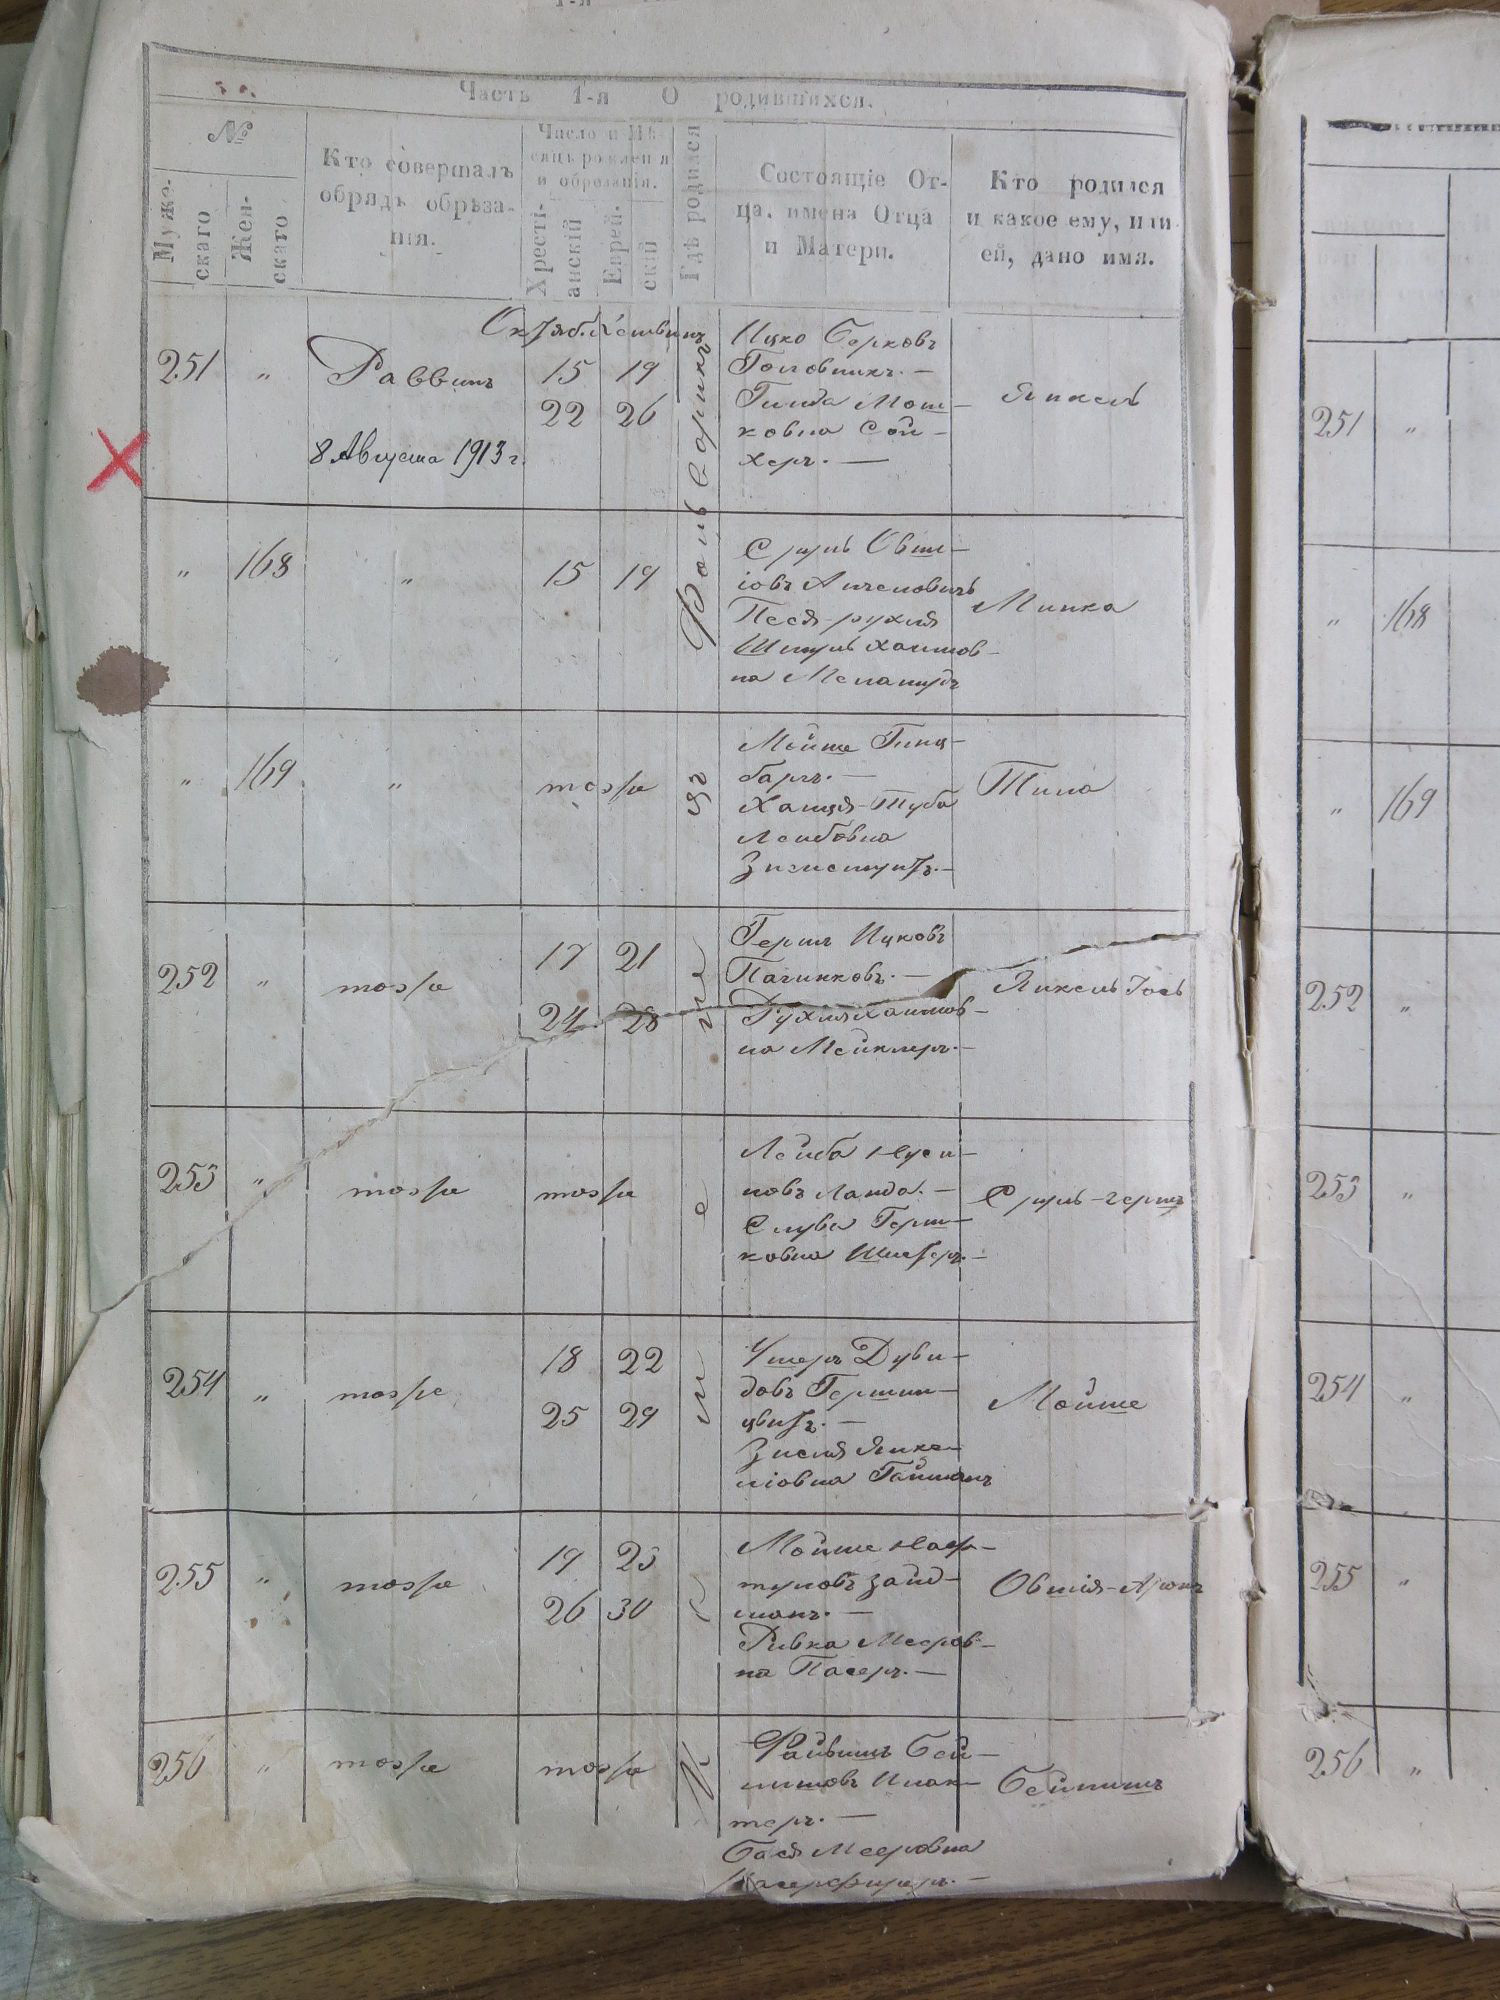 Часть 1-я О родившихся.
№
Муже-
скаго
Жен-
скаго
Кто совершалъ
обрядъ обрѣза-
нія.
Число и Мѣ-
сяцъ рожденія
и обрезанія.
Хресті-
анскій
Еврей-
скій
Гдѣ родился
Состоящіе От-
ца, имена Отца
и Матери.
Кто родился
и какое ему, или
ей, дано имя.
251 " Раввинъ
8 Августа 1913 г.
Октяб.
15 19
22 26
Ицко Берковъ
Головникъ. —
Гинда Мош-
ковна Сой-
херъ. —
Янкель
" 168 "
15 19
Сруль Овш-
іовъ
Песя-рухля
Шмуль Хаимов-
на
Минка
" 169 "
тоэже
Мойше Гинц-
барг. —
Ханця-Туба
Лейбовна
252 " тоэже
17 21
24 28
Герш Ицковъ
Пачинковъ. —
Рухля Хаимов-
на Мейклеръ. —
Янкель Гось
253 " тоэже
тоэже
Лейба Нуси-
новъ Ланда. —
Слува Герш-
ковна
Сруль-герш
254 " тоэже
18 22
25 29
Ушеръ Дуви-
довъ Гершко-
Зисля Янке-
ліовна
Мойше
255 " тоэже
19 23
26 30
Мойше Наф-
туловъ Зайд-
манъ. —
Ривка Мееров-
на Пасеръ. —
Овшія-Аронъ
256 " тоэже
тоэже
Файвишъ Бей-
нишовъ
теръ. —
Бася Мееровна
Бейнишъ
251 "
" 168
" 169
252 "
253 "
254 "
255 "
256 "